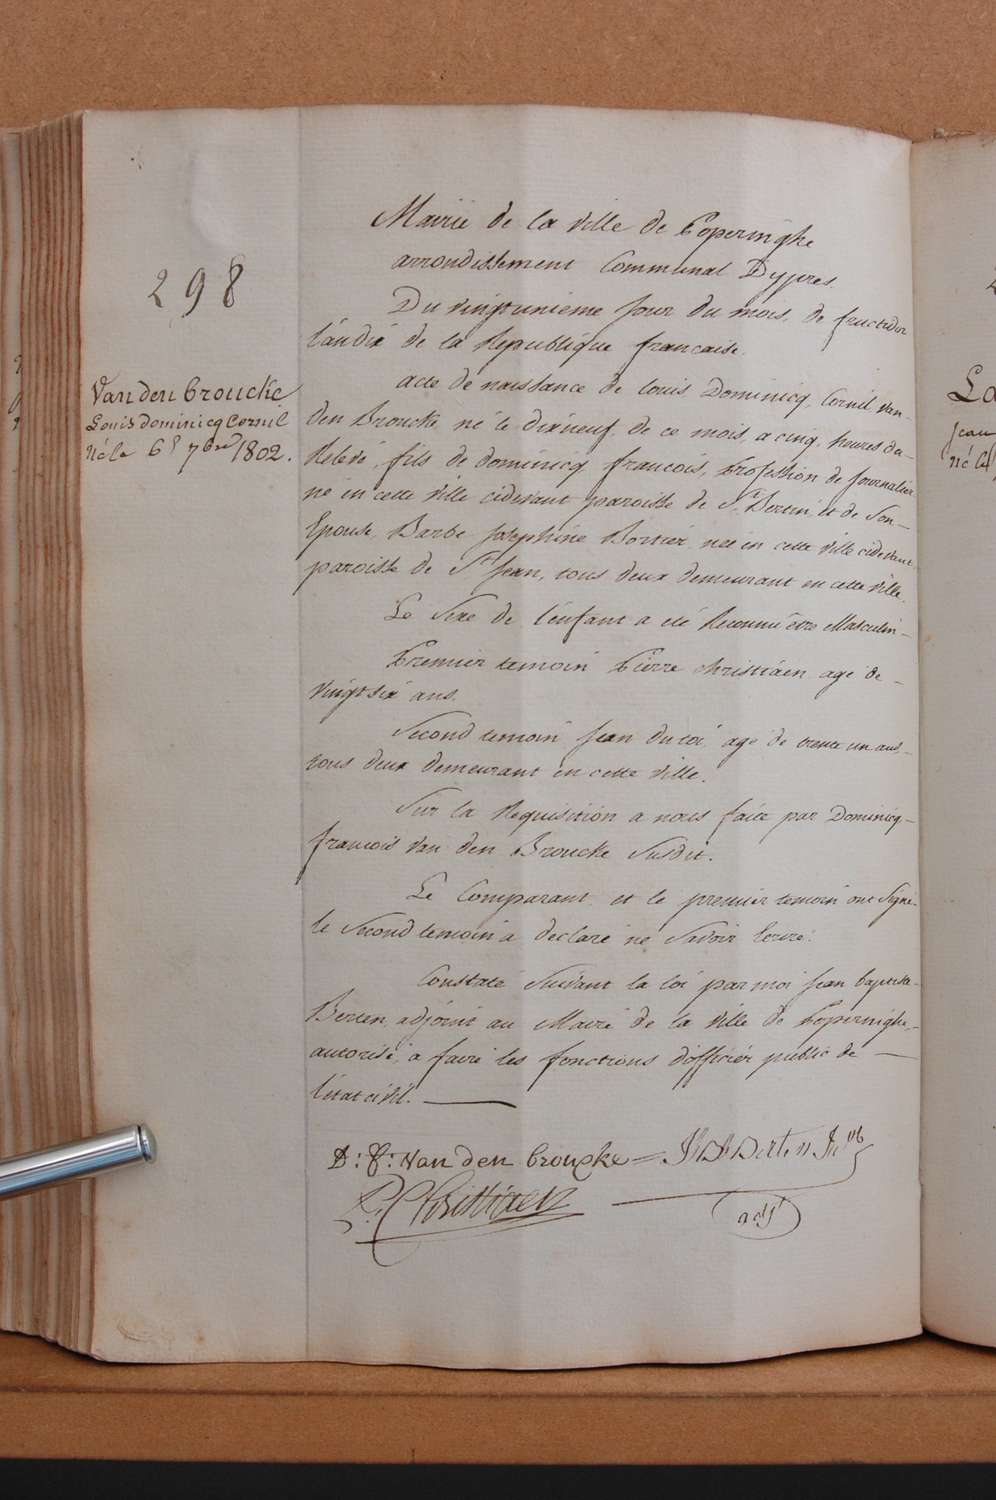 298
Van den broucke
Louis dominicq Cornil
Né le 6 7bre 1802.
Mairie de la ville de Poperinghe
arrondissement Communal Dypres
Du vingtunieme jour du mois de fructidor
l'an dix de la Republique francaise.
acte de naissance de Louis Dominicq Cornil van-
den Broucke, né le dixneuf de ce mois, a cinq heures du-
Relevé, fils de dominicq francois, Profession de journalier
né en cette ville cidevant paroisse de St. Bertin, et de son-
Epouse, Barbe Josephine Bortier née en cette ville cidevant
paroisse de St Jean, tous deux demeurant en cette ville.
Le Sexe de l'enfant a eté Reconnu être Masculin-
Premier temoin Pierre christiaen agé de-
vingtsix ans.
Second temoin Jean du toi agé de trente un ans-
tous deux demeurant en cette ville.
Sur la Requisition a nous faite par Dominicq-
francois van den Broucke susdit.
Le Comparant et le premier temoin ont signé-
le second temoin a declaré ne savoir Ecrire.
Constaté suivant la loi par moi Jean baptiste-
Berten, adjoint au Maire de la ville de Poperinghe-
autorisé a faire les fonctions d'officier public de —
l'etat civil. —
D: F: Van den broucke = J B Berten
P: Christiaen
adjt
La
Jean
né le